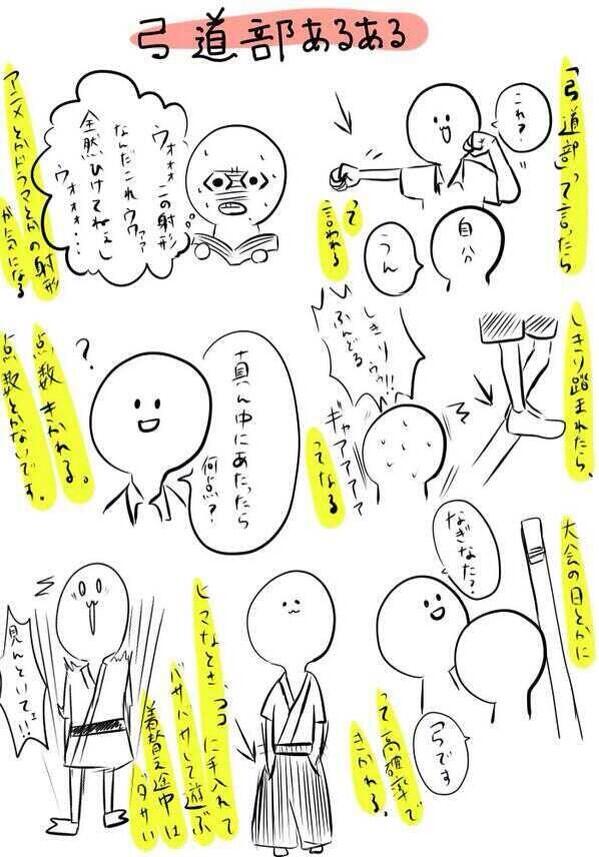 弓道部あるある
「弓道部」って言ったら
これ？
って
言われる
自分
うん
アニメとかドラマとかの射形
が気になる
ウオォォこの射形
なんだこれウワァァ
全然ひけてねぇし
ウオォォ…
しきり踏まれたら、
しきりウゥ!!
ふんどる
ギャアアアアア
ってなる
真ん中にあたったら
何点？
?
点数きかれる。
点数とかないです。
大会の日とかに
なぎなた？
弓です
って高確率で
きかれる。
ヒマなとき、ココに手入れて
バサバサして遊ぶ
着替え途中は
ダサい
見んといてェ!!